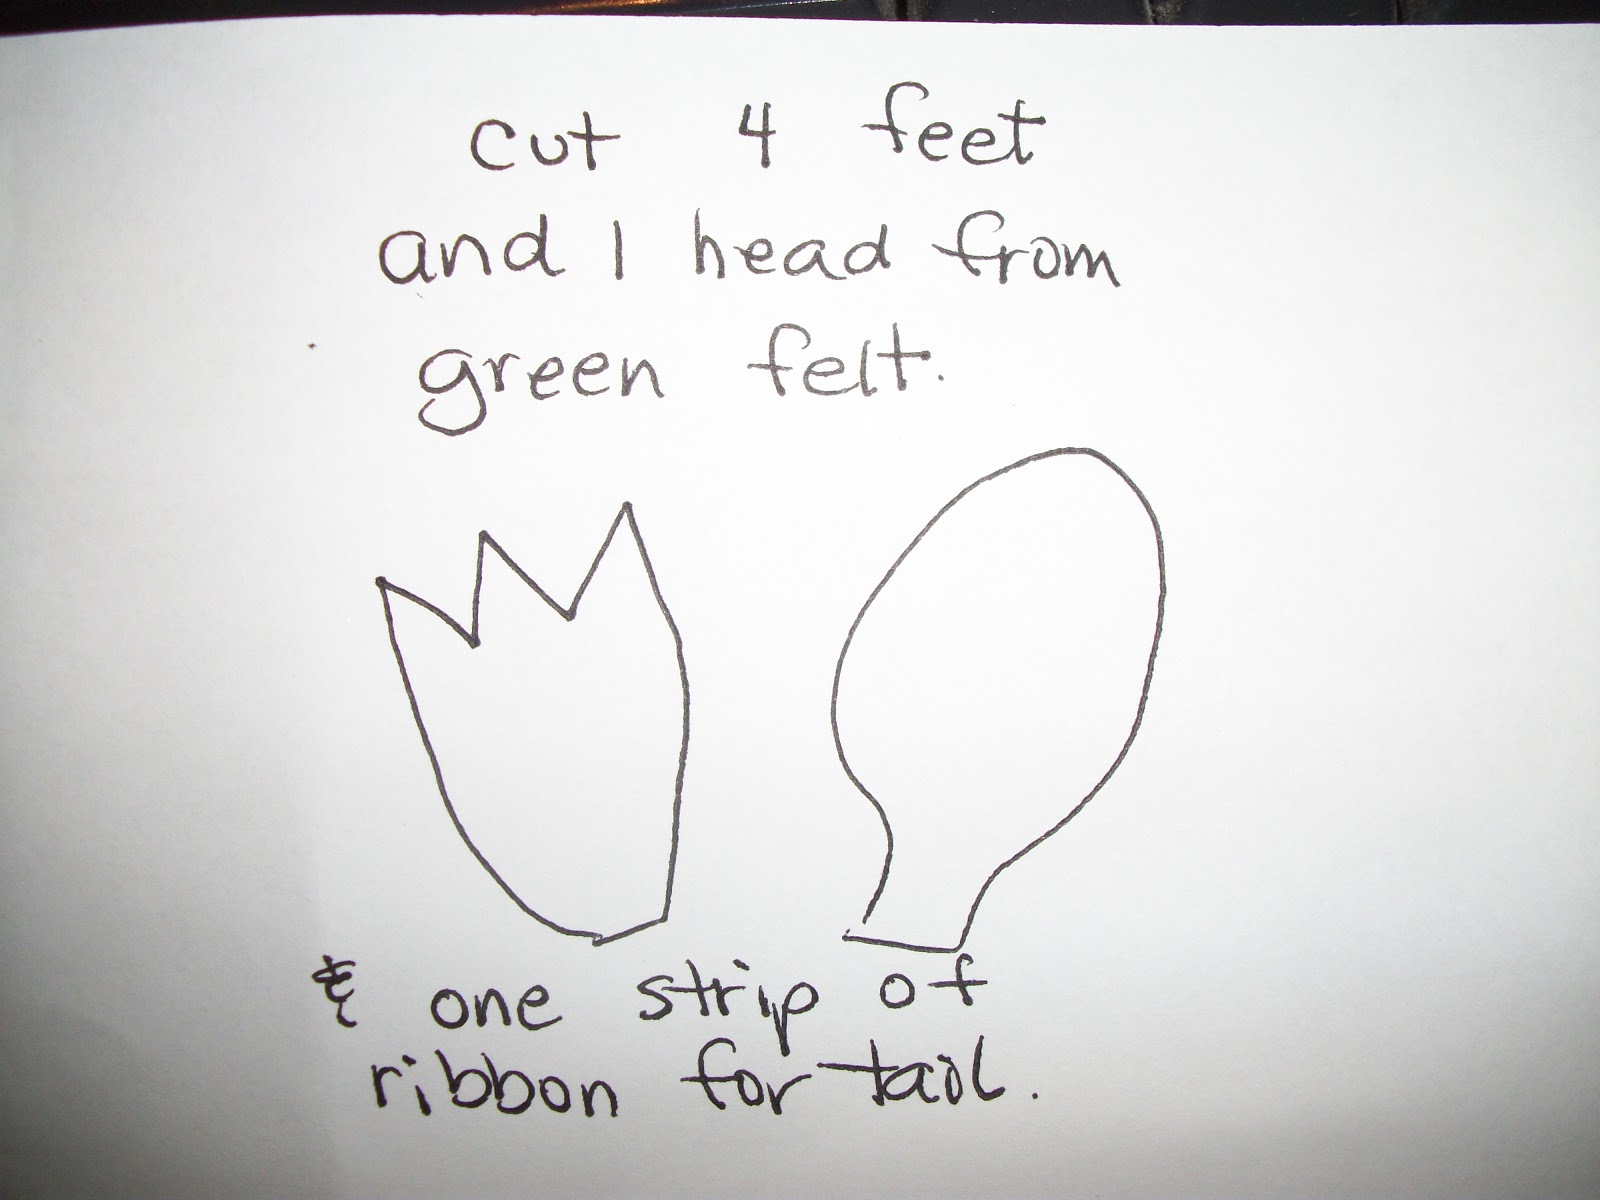 cut 4 feet
and 1 head from
green felt.
& one strip of
ribbon for tail.